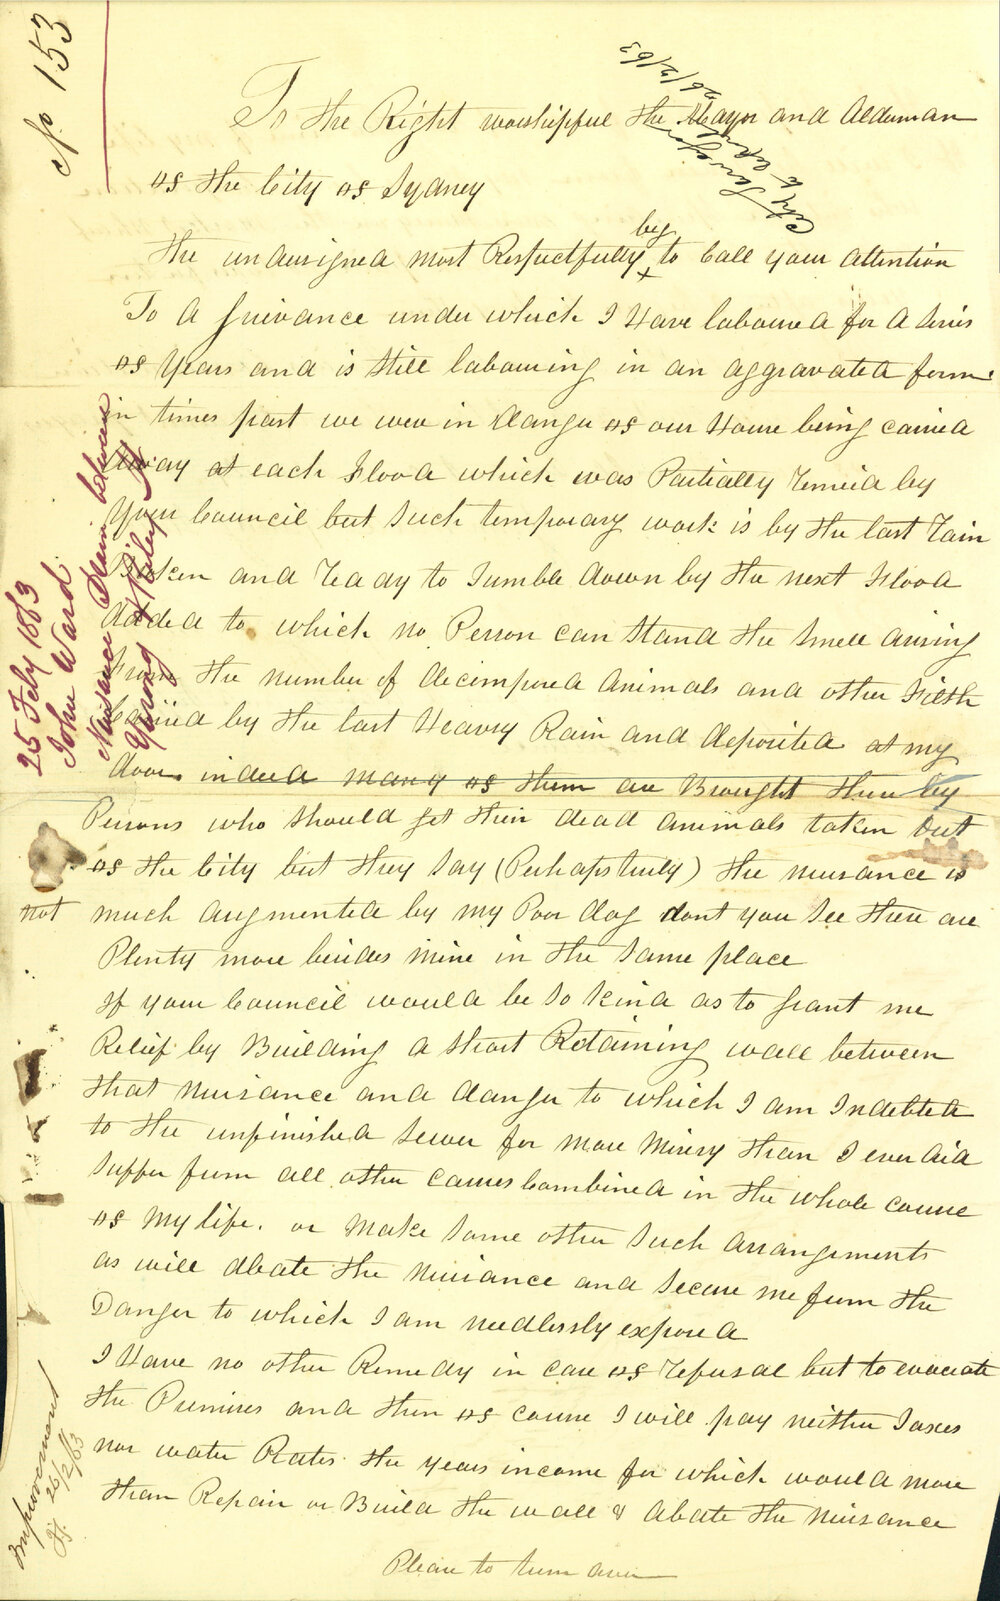 No 153
To the Right worshipful the Mayor and Alderman
of the City of Sydney
City Surveyor
to report
26/2/63
The undersigned most Respectfully by to Call your attention
To A Grievance under which I Have laboured for A Series
of Years and is Still labouring in an aggravated form
in times past we were in danger of our House being carried
Away at each Flood which was Partially remied by
Your Council but Such temporary work is by the last rain
Broken and ready to Tumble down by the next Flood
Added to which no Person can Stand the Smell arising
From the number of decomposed animals and other Filth
Carried by the last Heavey Rain and deposited at my
door. indeed many of them are Brought there by
Persons who Should get thier dead animals taken out
of the City but they Say (Perhaps truly) the nuisance is
not much augmented by my Poor dog dont you See there are
Plenty more besides mine in the Same place
If your Council would be So Kind as to grant me
Relief by Building a Short Retaining wall between
that nuisance and danger to which I am Indebted
to the unfinished Sewer for more Misery than I ever did
Suffer from all other Causes Combined in the whole course
of My life. or Make Some other Such arrangements
as will Abate the Nuisance and Secure me from the
Danger to which I am needlessly exposed
I Have no other Remedy in case of refusal but to evacuate
the Premises and then of course I will pay neither Taxes
nor water Rates the years income for which would more
than Repair or Build the wall & Abate the Nuisance
Please to turn over
25 Feby 1863
John Ward
Nuisance Drain between
Yurong & Riley St
Improvement
26/2/63